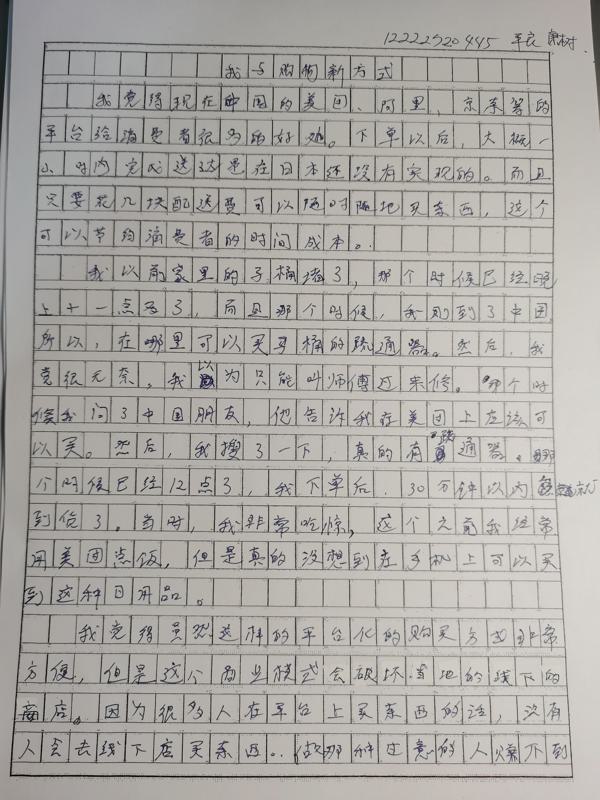 12222520445 平良
我与购物新方式
我觉得现在中国的美团、阿里、京东等的
平台给消费者很多的好处。下单以后，大概一
小时内完成送达是在日本还没有实现的。而且
只要花几块配送费可以随时随地买东西，这个
可以节约消费者的时间成本。
我以前家里的马桶堵了，那个时候已经晚
上十一点多了，而且那个时候，我刚到了中国
所以，在哪里可以买马桶的疏通器。然后，我
觉很无奈，我以为只能叫师傅过来修。那个时
候我问了中国朋友，他告诉我在美团上应该可
以买。然后，我搜了一下，真的有疏通器。那
个时候已经12点了，我下单后，30分钟以内就
到货了。当时，我非常吃惊，这个之前我经常
用美团点饭，但是真的没想到在手机上可以买
到这种日用品。
我觉得虽然这样的平台化的购买方式非常
方便，但是这个商业模式会破坏当地的线下的
商店。因为很多人在平台上买东西的话，没有
人会去线下店买东西。做那种生意的人赚不到